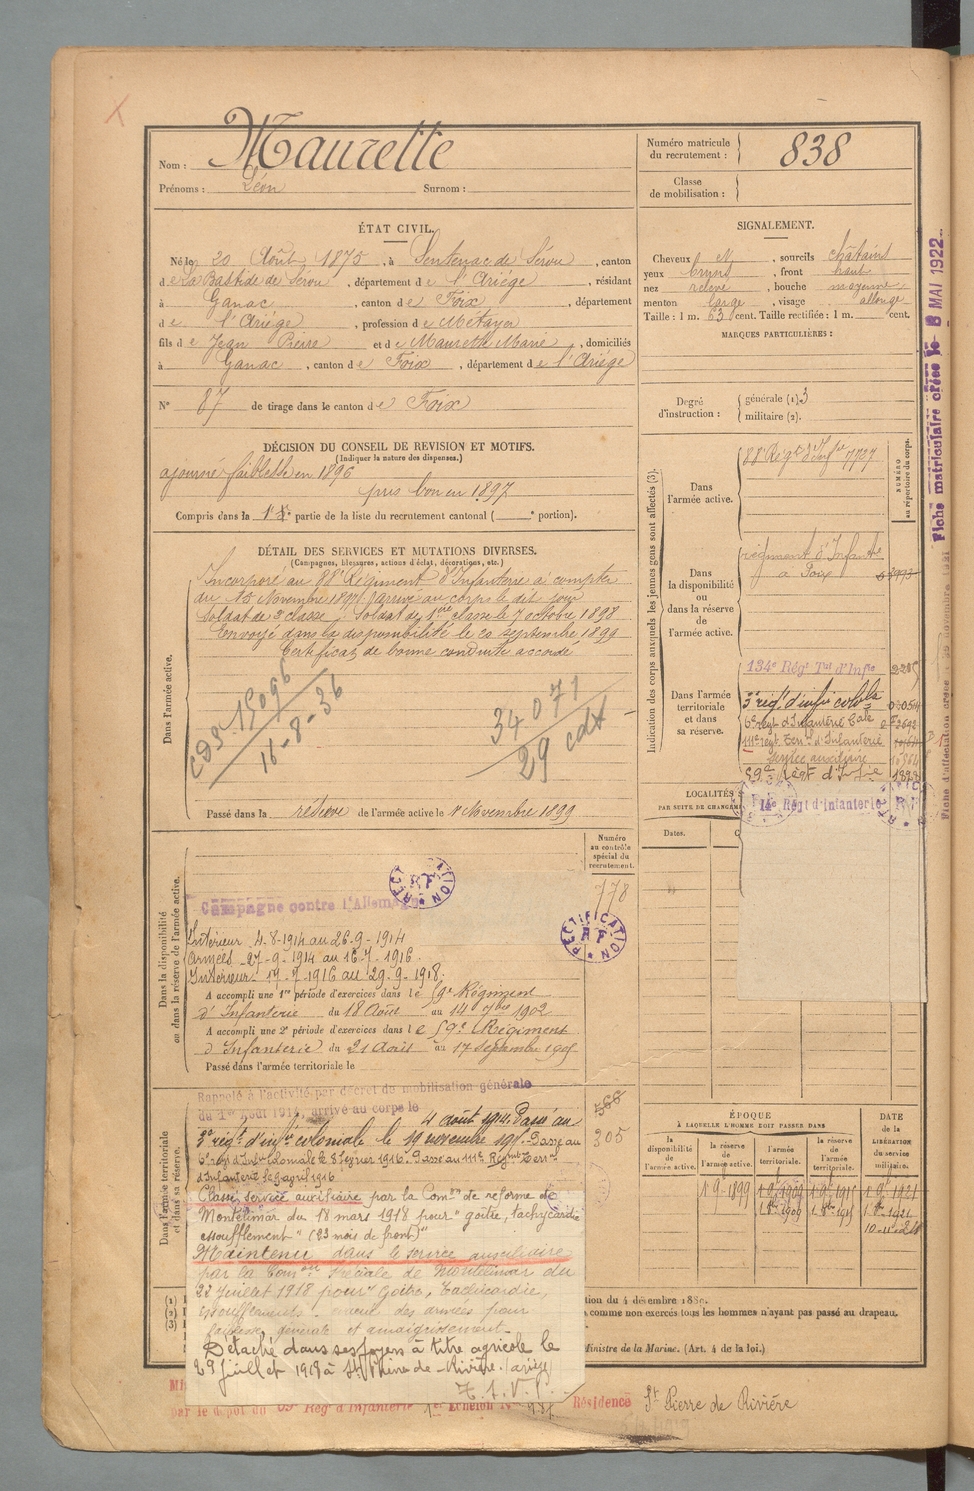 X
Nom : Maurette
Prénoms : Léon Surnom :
Numéro matricule du recrutement : 838
Classe de mobilisation :
ÉTAT CIVIL.
Né le 20 Août 1875, à Sentenac de Sérou, canton
de La Bastide de Sérou, département de l'Ariége, résidant
à Ganac, canton de Foix, département
de l'Ariége, profession de Métayer
fils de Jean Pierre et de Maurette Marie, domiciliés
à Ganac, canton de Foix, département de l'Ariége
N° 87 de tirage dans le canton de Foix
SIGNALEMENT.
Cheveux N, sourcils châtains
yeux bruns, front haut
nez relevé, bouche moyenne
menton large, visage allongé
Taille : 1 m. 63 cent. Taille rectifiée : 1 m. cent.
MARQUES PARTICULIÈRES :
Degré d'instruction : générale (1) 3
militaire (2).
DÉCISION DU CONSEIL DE REVISION ET MOTIFS.
(Indiquer la nature des dispenses.)
ajourné faiblesse en 1896
pris bon en 1897
Compris dans la 1e partie de la liste du recrutement cantonal ( e portion).
DÉTAIL DES SERVICES ET MUTATIONS DIVERSES.
(Campagnes, blessures, actions d'éclat, décorations, etc.)
Dans l'armée active.
Incorporé au 88e Régiment d'Infanterie à compter
du 15 Novembre 1897 arrivé au corps le dit jour
soldat de 2e classe. Soldat de 1ère classe le 7 octobre 1898
Envoyé dans la disponibilité le 20 septembre 1899
Certificat de bonne conduite accordé
CDS 15096
16-8-36
34071
29 cdt
Passé dans la réserve de l'armée active le 1er Novembre 1899
Indication des corps auxquels les jeunes gens sont affectés (3).
NUMÉRO au répertoire du corps.
Dans l'armée active.
88e Régt d'Infie 7727
Dans la disponibilité ou dans la réserve de l'armée active.
régiment d'Infanterie
à Foix
Dans l'armée territoriale et dans sa réserve.
134e Régt Tal d'Infie
3e régt d'infie colole
6e régt d'Infanterie Cale
111e régt Terr. d'Infanterie
service auxiliaire
59e Régt d'Infie
14e Régt d'Infanterie
Fiche matriculaire créée le 8 MAI 1922
LOCALITÉS
PAR SUITE DE CHANGEM
Dates.
Numéro au contrôle spécial du recrutement.
778
RECTIFICATION RF
RECTIFICATION RF
Dans la disponibilité ou dans la réserve de l'armée active.
Campagne contre l'Allemagne
Intérieur 4-8-1914 au 26-9-1914
Armées 27-9-1914 au 16-7-1916
Intérieur 17-7-1916 au 29-9-1918
A accompli une 1re période d'exercices dans le 59e Régiment
d'Infanterie du 18 Août au 14 7bre 1902
A accompli une 2e période d'exercices dans le 59e Régiment
d'Infanterie du 21 Août au 17 septembre 1905
Passé dans l'armée territoriale le
Dans l'armée territoriale et dans sa réserve.
Rappelé à l'activité par décret de mobilisation générale
du 1er Août 1914, arrivé au corps le 4 août 1914. Passé au
3e régt d'infie coloniale le 19 novembre 1915. Passé au
6e régt d'Infie Coloniale le 8 février 1916. Passé au 111e Régiment Terral
d'Infanterie le 9 avril 1916
568
305
Classé service auxiliaire par la Comon de réforme de
Montélimar du 18 mars 1918 pour " goitre, tachycardie
essoufflement " (23 mois de front)
Maintenu dans le service auxiliaire
par la Comon Spéciale de Montélimar du
22 Juillet 1918 pour " Goitre, Tachycardie,
essoufflements recul des armées pour
faiblesse générale et amaigrissement
Détaché dans ses foyers à titre agricole le
29 Juillet 1918 à St Pierre de Rivière (ariège)
T.S.V.P.
ÉPOQUE
À LAQUELLE L'HOMME DOIT PASSER DANS
la disponibilité de l'armée active.
la réserve de l'armée active.
l'armée territoriale.
la réserve de l'armée territoriale.
DATE de la LIBÉRATION du service militaire.
1-9-1899 1-9-1909 1-9-1915 1-9-1921
1 8bre 1909 1 8bre 1915 1 8bre 1921
(1)
(2)
(3)
tion du 4 décembre 188
comme non exercés tous les hommes n'ayant pas passé au drapeau.
Ministre de la Marine. (Art. 4 de la loi.)
par le dépôt du 59e Rég d'Infanterie 1er Échelon N°
Résidence St Pierre de Rivière